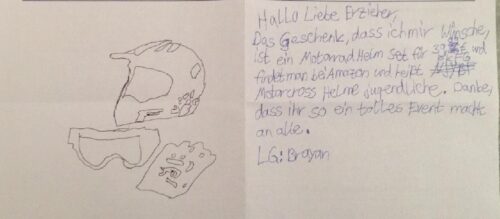 Hallo Liebe Erzieher,
Das Geschenk, dass ich mir Wünsche,
ist ein Motorrad Helm Set für € und
findet man bei Amazon und heißt
Motorcross Helme jugendliche. Danke,
dass ihr so ein tolles Event macht
an alle.
LG: Brayan